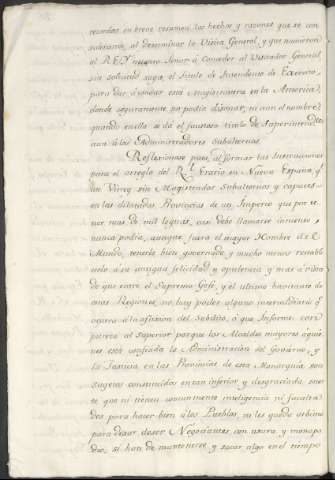 recordar en breve resumen los hechos y razones que se con
sultaron, al determinar la Visita General, y que movieron
al REY nuestro Señor à Conceder al Visitador General,
sin solicitud suya, el titulo de Intendente de Exercito,
para dar à conocer esta Magistratura en la America,
donde seguramente no podia disonar, ni aun el nombre,
quando en ella se dá el fastoso titulo de Superintendtes
aun à los Administradores Subalternos.
Reflexionose pues, al formar las Instrucciones
para el arreglo del Rl. Erario en Nueva España, qe.
un Virrey sin Magistrados Subalternos y capaces
en las dilatadas Provincias de un Imperio que por te-
ner mas de mil leguas, casi debe llamarse inmenso,
nunca podria, aunque fuera el mayor Hombre del
Mundo, tenerle bien governado, y mucho menos restable
cerlo à su antigua felicidad y opulencia y mas à vista
de que entre el Supremo Gefe, y el ultimo havitante de
estas Regiones, no hay poder alguno intermediario qe.
ocurra à la afliccion del Subdito, ò que Informe con
pureza al Superior porque los Alcaldes mayores à quie-
nes está confiada la Administracion del Govierno, y
la Justicia en las Provincias de esta Monarquia son
sugetos constituidos en tan inferior, y desgraciada suer
te que ni tienen comunmente inteligencia ni faculta
des para hacer bien à los Pueblos, ni les queda arbitrio
para dexar de ser Negociantes con usura y monopo
dio, si han de mantenerse y sacar algo en el tiempo